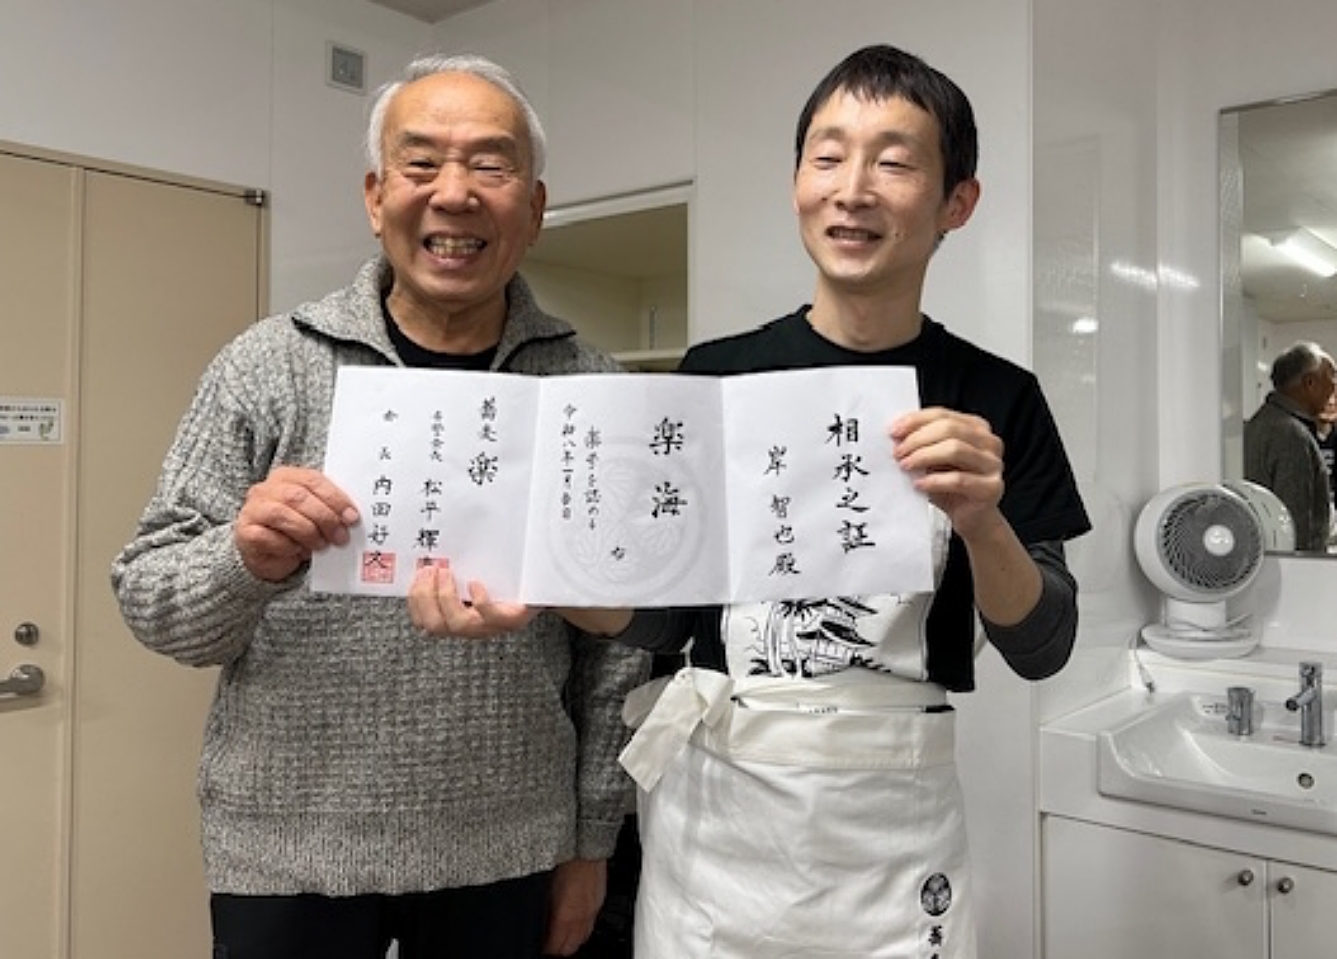 相承之証
岸 智也殿
楽海
楽号を認める
令和八年一月吉日
蕎麦 楽
名誉会長 松平 輝
会長 内田好文